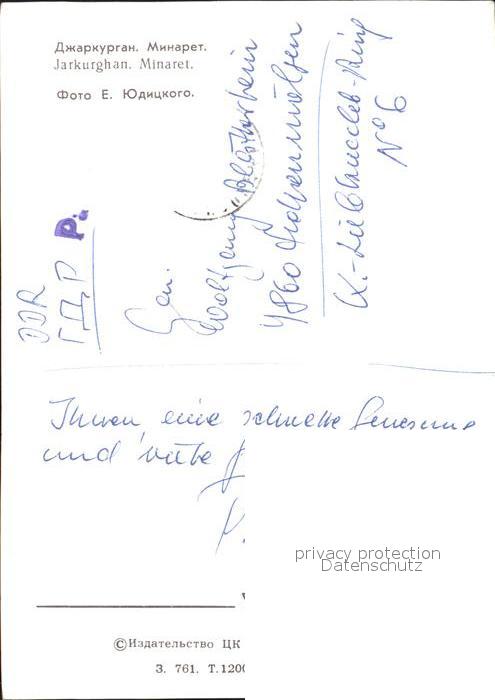 Джаркурган. Минарет.
Jarkurghan. Minaret.
Фото Е. Юдицкого.
DDR
ГДР
Gen.
Wolfgang
4860 Hohenmölsen
K.-Liebknecht-Ring
No 6
Ihnen, eine schnelle Genesung
und
privacy protection
Datenschutz
©Издательство ЦК
З. 761. Т.1200